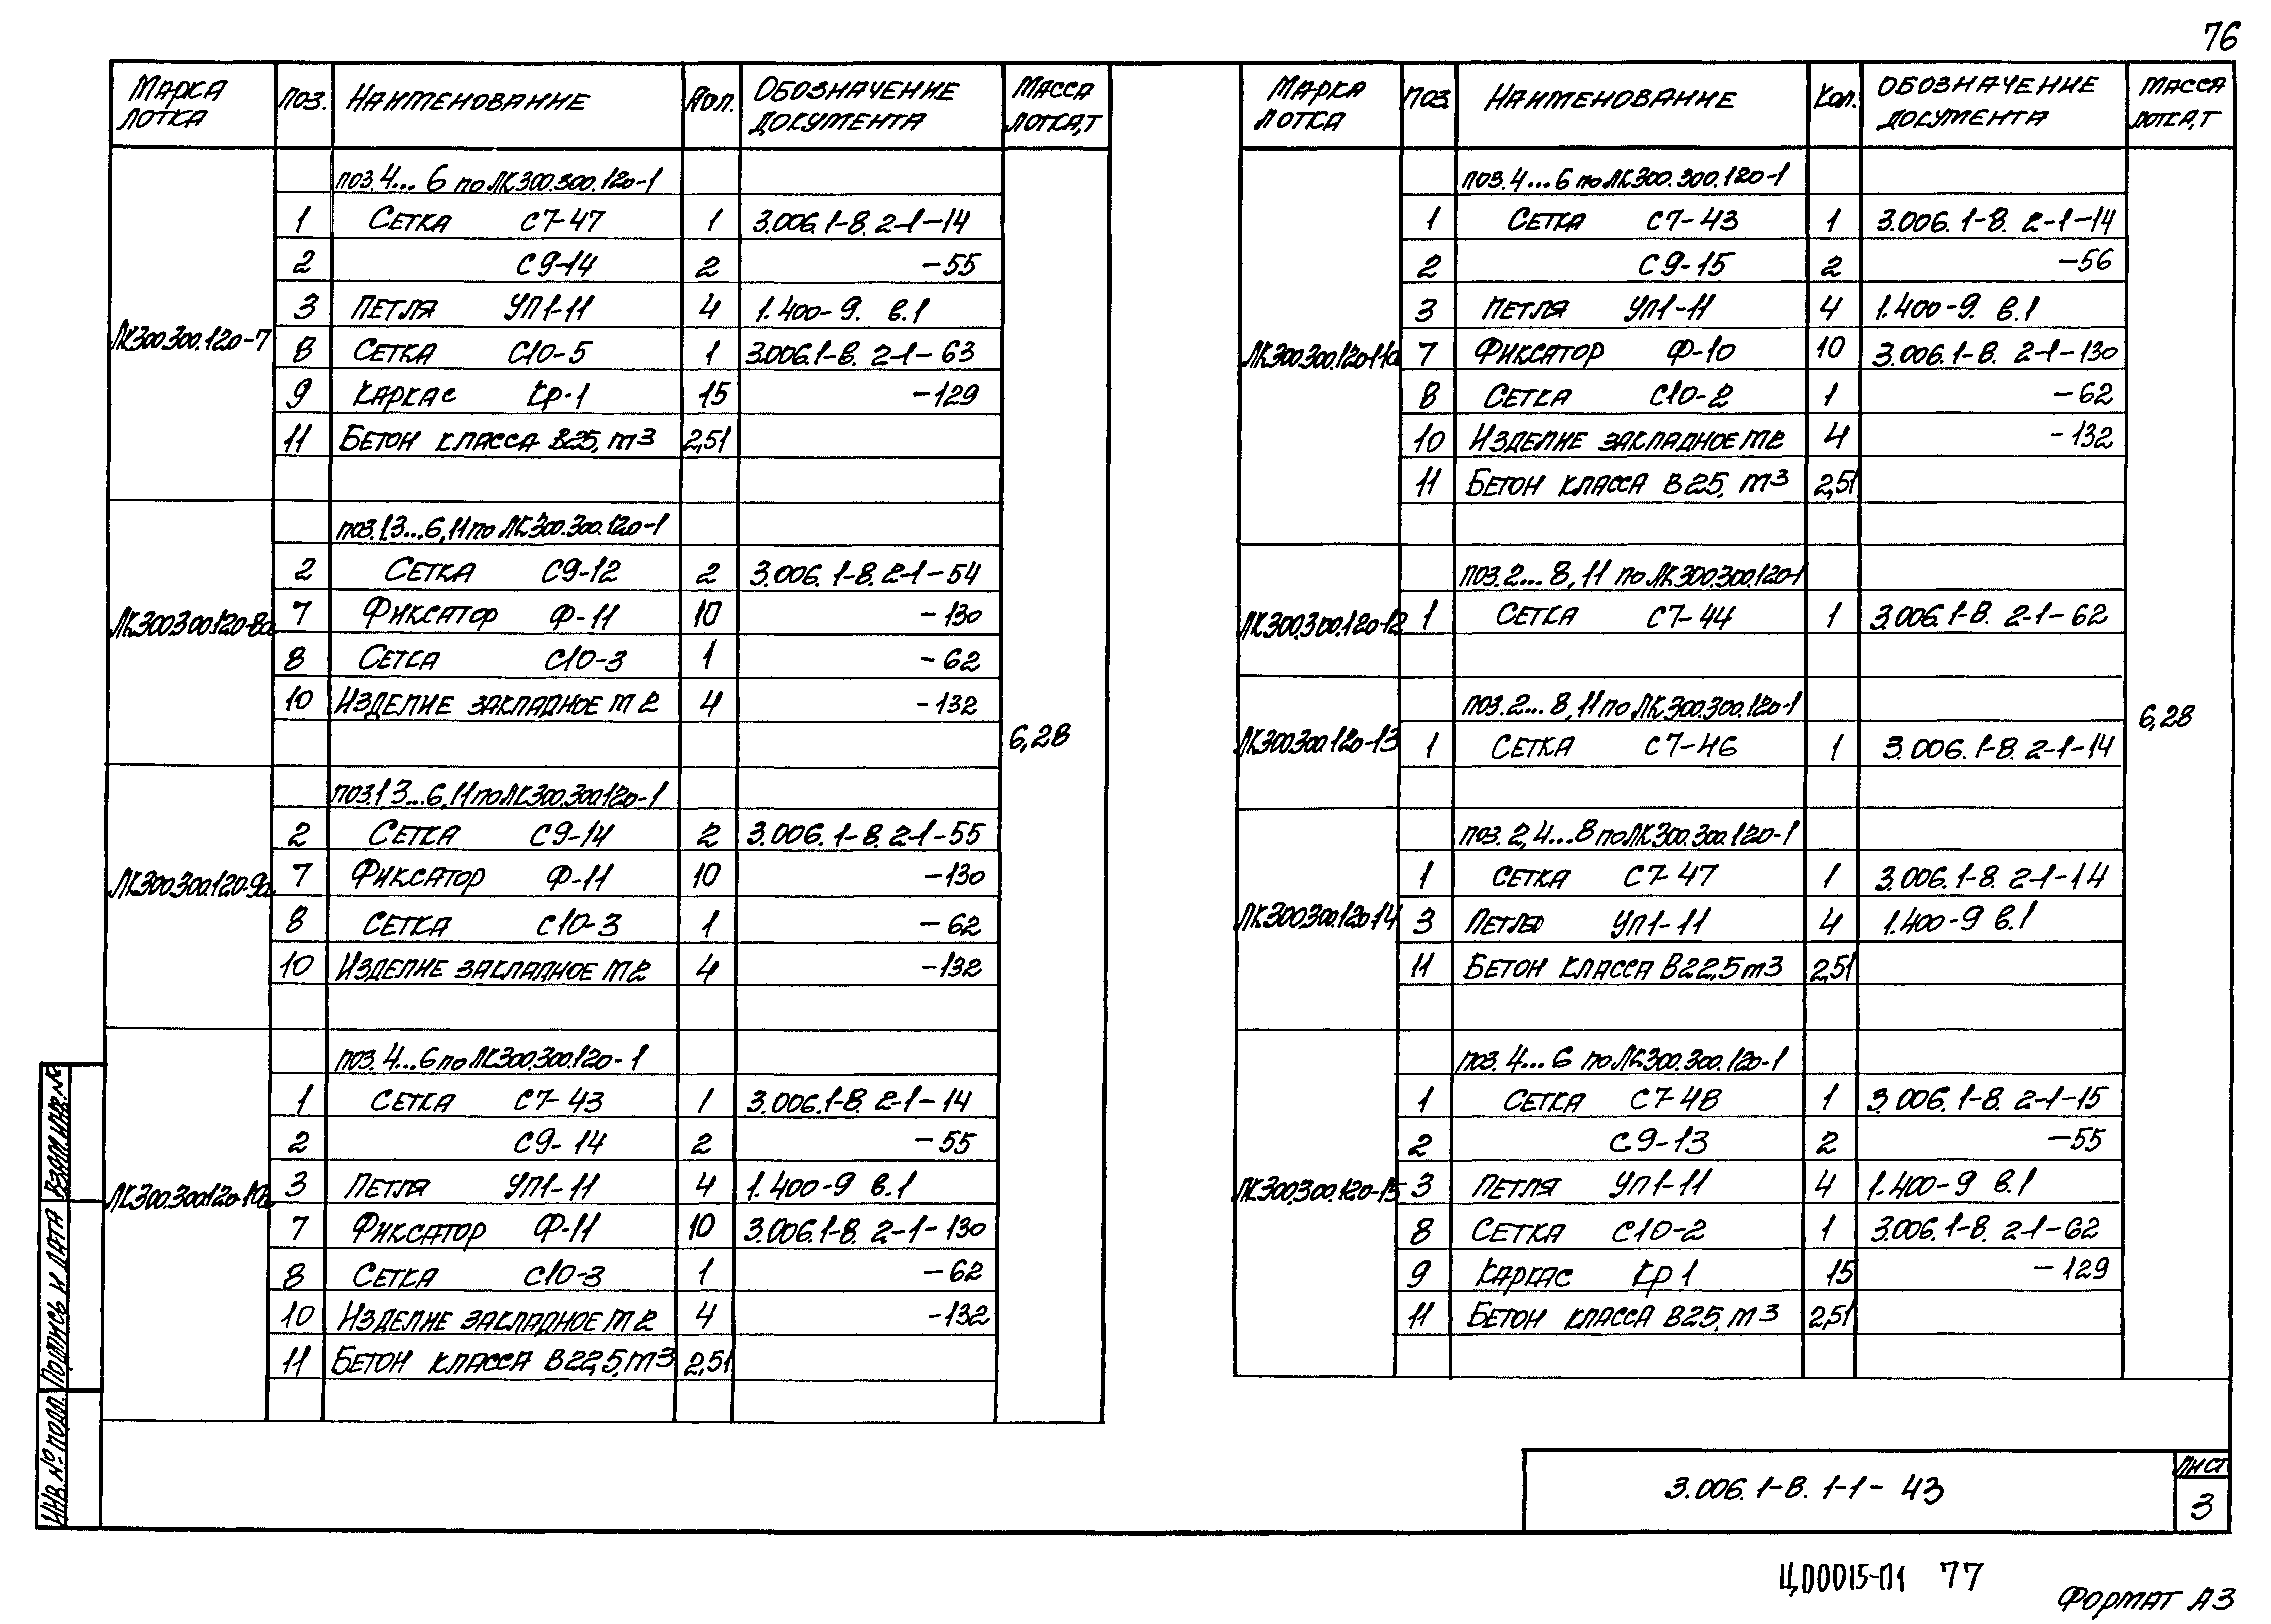 76
Марка лотка | Поз. | Наименование | Кол. | Обозначение документа | Масса лотка,т
ЛК300.300.120-7
поз.4...6 по ЛК300.300.120-1
1 Сетка С7-47 1 3.006.1-8.2-1-14
2 С9-14 2 -55
3 Петля УП1-11 4 1.400-9. в.1
8 Сетка С10-5 1 3.006.1-8. 2-1-63
9 Каркас Кр-1 15 -129
11 Бетон класса В25, м3 2,51
ЛК300.300.120-8а
поз.1,3...6,11 по ЛК300.300.120-1
2 Сетка С9-12 2 3.006.1-8.2-1-54
7 Фиксатор Ф-11 10 -130
8 Сетка С10-3 1 -62
10 Изделие закладное М2 4 -132
ЛК300.300.120-9а
поз.1,3...6,11 по ЛК300.300.120-1
2 Сетка С9-14 2 3.006.1-8.2-1-55
7 Фиксатор Ф-11 10 -130
8 Сетка С10-3 1 -62
10 Изделие закладное М2 4 -132
ЛК300.300.120-10а
поз.4...6 по ЛК300.300.120-1
1 Сетка С7-43 1 3.006.1-8.2-1-14
2 С9-14 2 -55
3 Петля УП1-11 4 1.400-9 в.1
7 Фиксатор Ф-11 10 3.006.1-8. 2-1-130
8 Сетка С10-3 1 -62
10 Изделие закладное М2 4 -132
11 Бетон класса В22,5, м3 2,51
6,28
Марка лотка | Поз. | Наименование | Кол. | Обозначение документа | Масса лотка,т
ЛК300.300.120-11а
поз.4...6 по ЛК300.300.120-1
1 Сетка С7-43 1 3.006.1-8. 2-1-14
2 С9-15 2 -56
3 Петля УП1-11 4 1.400-9. в.1
7 Фиксатор Ф-10 10 3.006.1-8. 2-1-130
8 Сетка С10-2 1 -62
10 Изделие закладное М2 4 -132
11 Бетон класса В25, м3 2,51
ЛК300.300.120-12
поз.2...8,11 по ЛК300.300.120-1
1 Сетка С7-44 1 3.006.1-8. 2-1-62
ЛК300.300.120-13
поз.2...8,11 по ЛК300.300.120-1
1 Сетка С7-46 1 3.006.1-8.2-1-14
ЛК300.300.120-14
поз.2,4...8 по ЛК300.300.120-1
1 Сетка С7-47 1 3.006.1-8. 2-1-14
3 Петля УП1-11 4 1.400-9 в.1
11 Бетон класса В22,5 м3 2,51
ЛК300.300.120-15
поз.4...6 по ЛК300.300.120-1
1 Сетка С7-48 1 3.006.1-8. 2-1-15
2 С9-13 2 -55
3 Петля УП1-11 4 1.400-9 в.1
8 Сетка С10-2 1 3.006.1-8. 2-1-62
9 Каркас Кр 1 15 -129
11 Бетон класса В25, м3 2,51
6,28
Инв.№подл. Подпись и дата Взам.инв.№
3.006.1-8.1-1-43
Лист
3
Ц00015-01 77
Формат А3